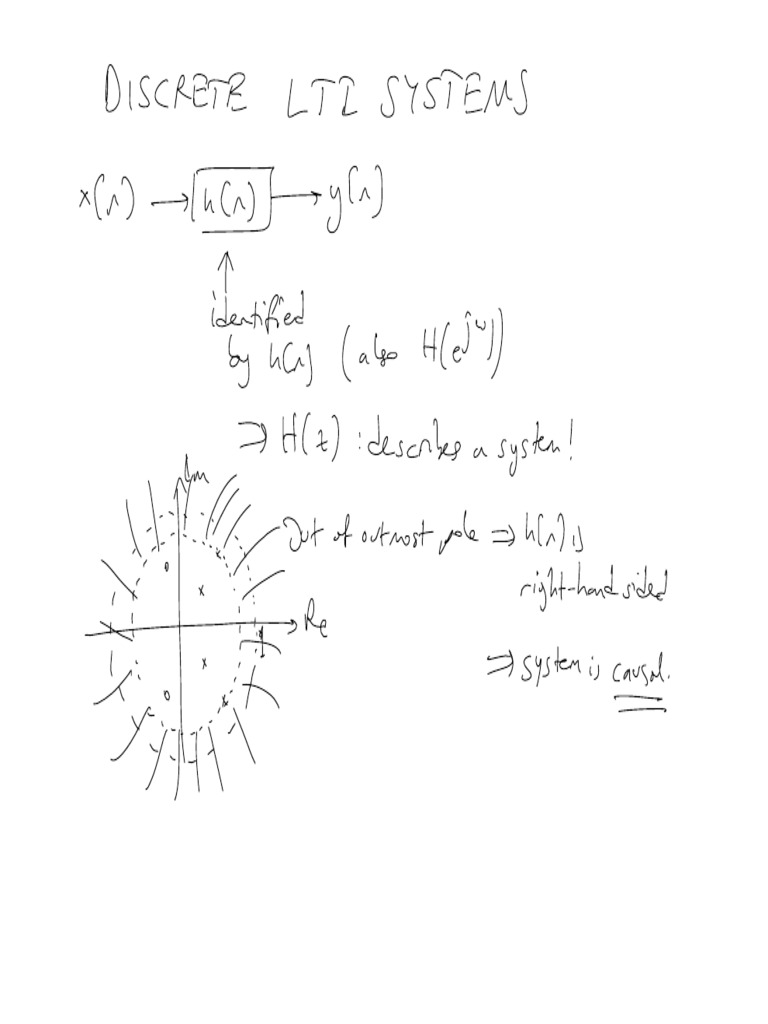 DISCRETE LTI SYSTEMS
x(n) → h(n) → y(n)
↑
identified
by h(n) (also H(e^jω))
⇒ H(z) : describes a system!
Im
Out of outmost pole ⇒ h(n) is
right-hand sided
Re
1
⇒ system is causal.